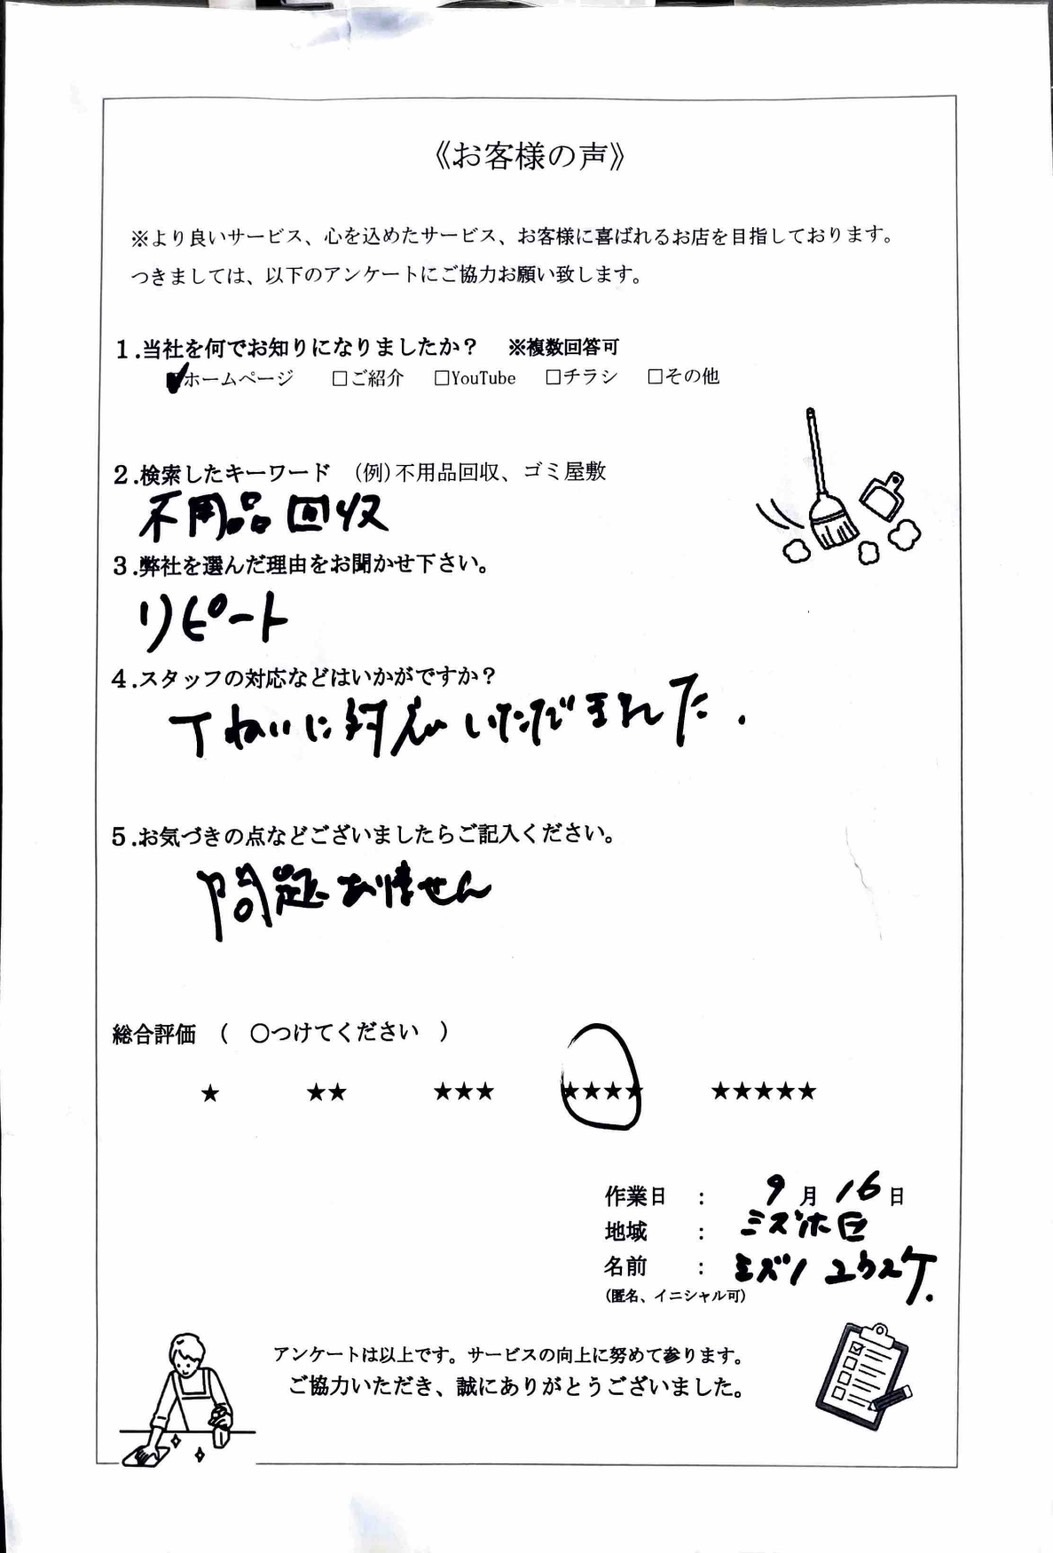 《お客様の声》
※より良いサービス、心を込めたサービス、お客様に喜ばれるお店を目指しております。
つきましては、以下のアンケートにご協力お願い致します。
1.当社を何でお知りになりましたか？ ※複数回答可
☑ホームページ □ご紹介 □YouTube □チラシ □その他
2.検索したキーワード (例)不用品回収、ゴミ屋敷
不用品回収
3.弊社を選んだ理由をお聞かせ下さい。
リピート
4.スタッフの対応などはいかがですか？
丁ねいに対応いただきました.
5.お気づきの点などございましたらご記入ください。
問題ありません
総合評価 （ ○つけてください ）
★ ★★ ★★★ ★★★★ ★★★★★
作業日 : 9月16日
地域 : ミズホ区
名前 : ミズノ ユウスケ.
(匿名、イニシャル可)
アンケートは以上です。サービスの向上に努めて参ります。
ご協力いただき、誠にありがとうございました。